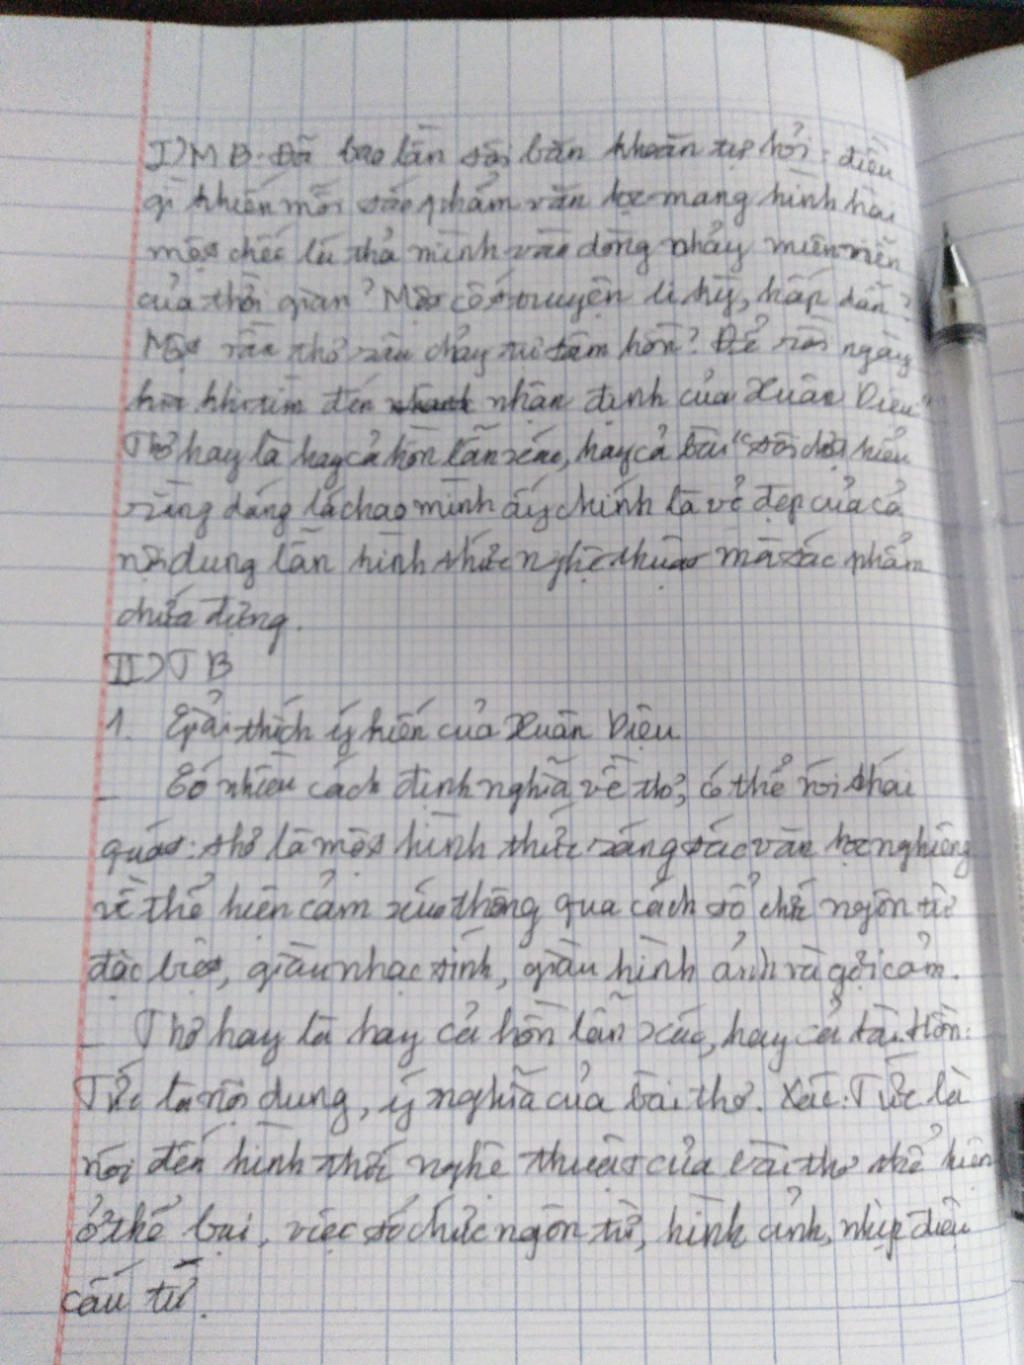 I) MB. Đã bao lần tôi băn khoăn tự hỏi: điều
gì khiến mỗi tác phẩm văn học mang hình hài
một chiếc lá thả mình vào dòng chảy miên viễn
của thời gian? Một cốt truyện li kỳ, hấp dẫn?
Một vần thơ sâu chảy từ tâm hồn? Để rồi ngày
khi tìm đến nhận định của Xuân Diệu "
Thơ hay là hay cả hồn lẫn xác, hay cả bài" tôi chợt hiểu
rằng dáng lá chao mình ấy chính là vẻ đẹp của cả
nội dung lẫn hình thức nghệ thuật mà tác phẩm
chứa đựng.
II) TB
1. Giải thích ý kiến của Xuân Diệu
_ Có nhiều cách định nghĩa về thơ, có thể nói khái
quát: thơ là một hình thức sáng tác văn học nghiêng
về thể hiện cảm xúc thông qua cách tổ chức ngôn từ
đặc biệt, giàu nhạc tính, giàu hình ảnh và gợi cảm.
_ Thơ hay là hay cả hồn lẫn xác, hay cả bài. Hồn:
Tức là nội dung, ý nghĩa của bài thơ. Xác: Tức là
nói đến hình thức nghệ thuật của bài thơ thể hiện
ở thể loại, việc tổ chức ngôn từ, hình ảnh, nhịp điệu
cấu tứ.